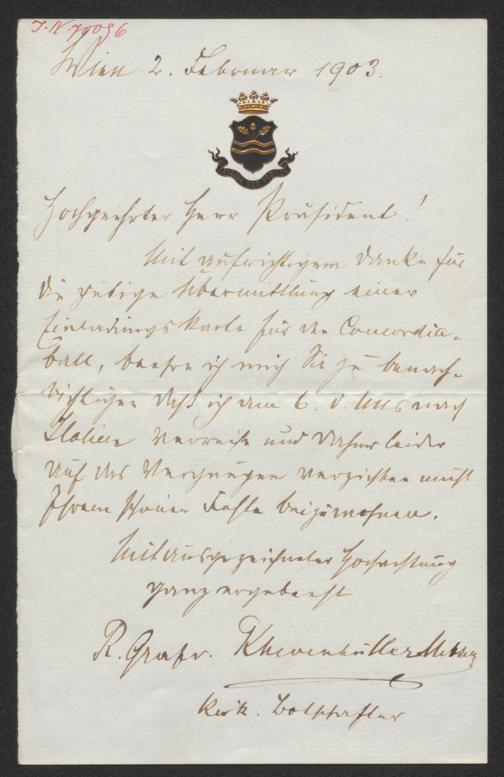 J.N. 79056
Wien 2. Februar 1903.
Hochgeehrter Herr Präsident!
Mit aufrichtigem Danke für
die gütige Übermittlung einer
Einladungskarte für den Concordia-
ball, beehre ich mich Sie zu benach-
richtigen daß ich am 6. d. Mts nach
Italien verreise und daher leider
auf das Vergnügen verzichten muß
Ihrem schönen Feste beizuwohnen.
Mit ausgezeichneter Hochachtung
ganz ergebenst
R. Graf Khevenhüller Metsch
k. u. k. Botschafter